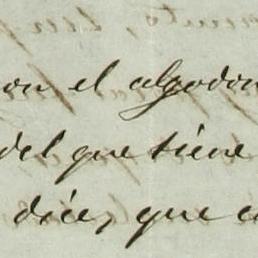 on el algodon
del que tiene
dice, que